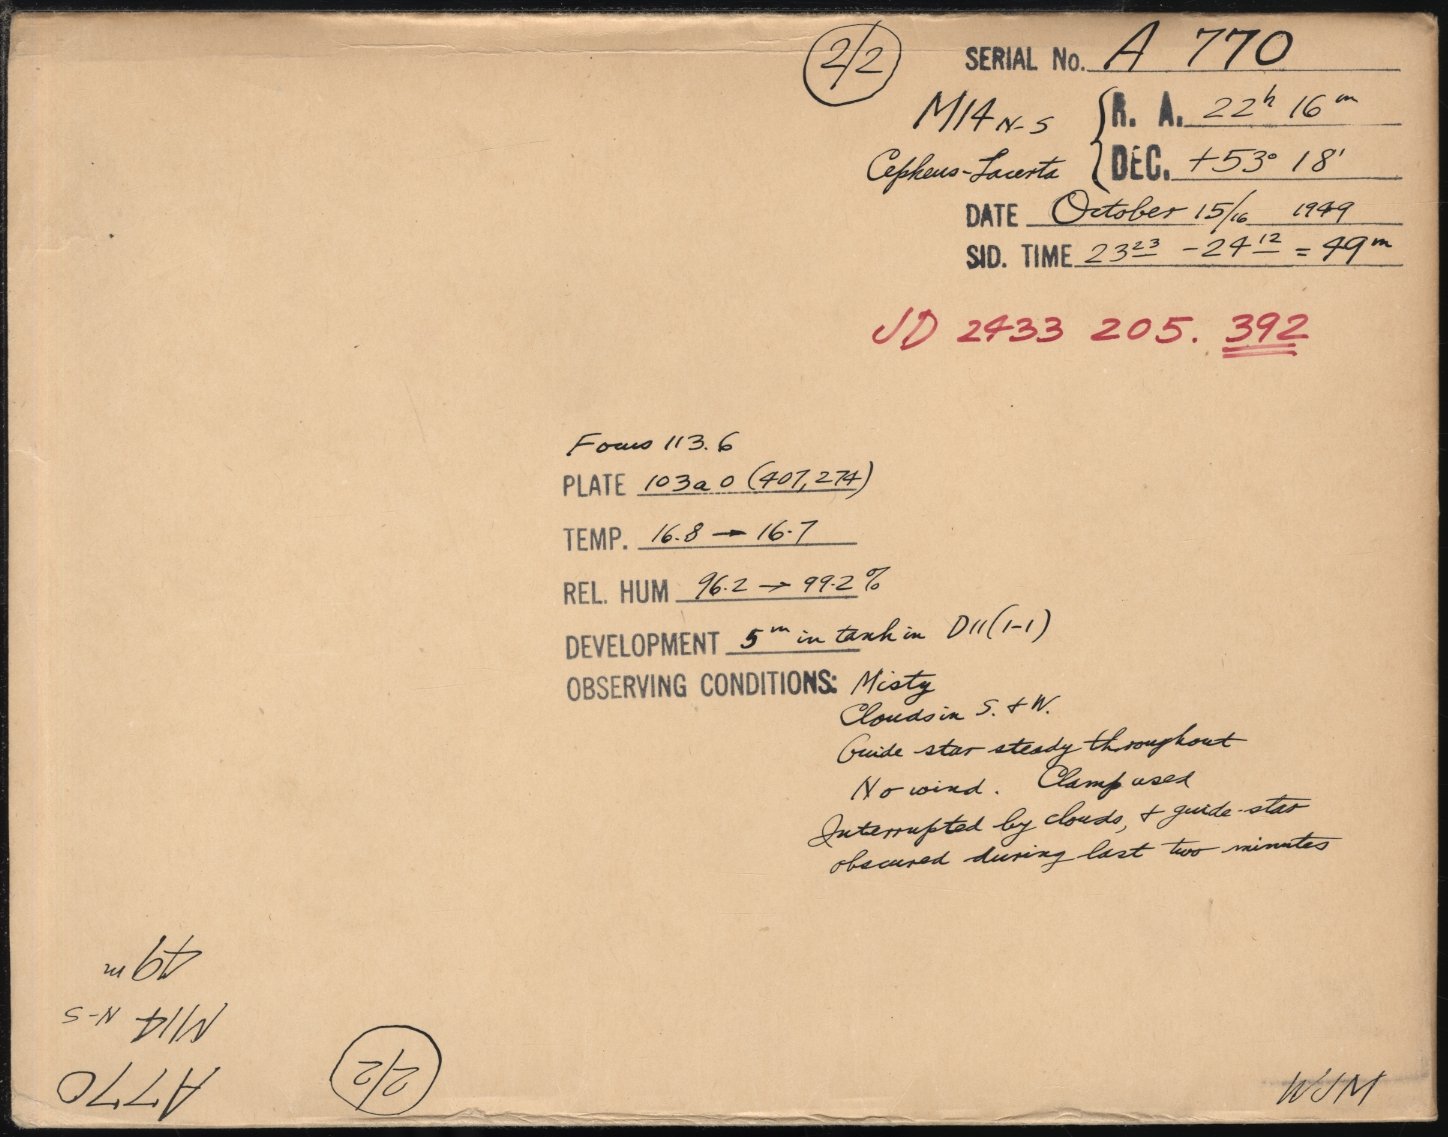 2/2
SERIAL No. A 770
M14 N-S
R. A. 22h 16m
Cepheus-Lacerta
DEC. +53° 18'
DATE October 15/16 1949
SID. TIME 23 23 - 24 12 = 49m
JD 2433 205. 392
Focus 113.6
PLATE 103a O (407,274)
TEMP. 16.8 → 16.7
REL. HUM 96.2 → 99.2%
DEVELOPMENT 5m in tank in D11(1-1)
OBSERVING CONDITIONS: Misty
Clouds in S. + W.
Guide star steady throughout
No wind. Clamp used
Interrupted by clouds, + guide-star
obscured during last two minutes
49m
M14 N-S
A770
2/2
WJM